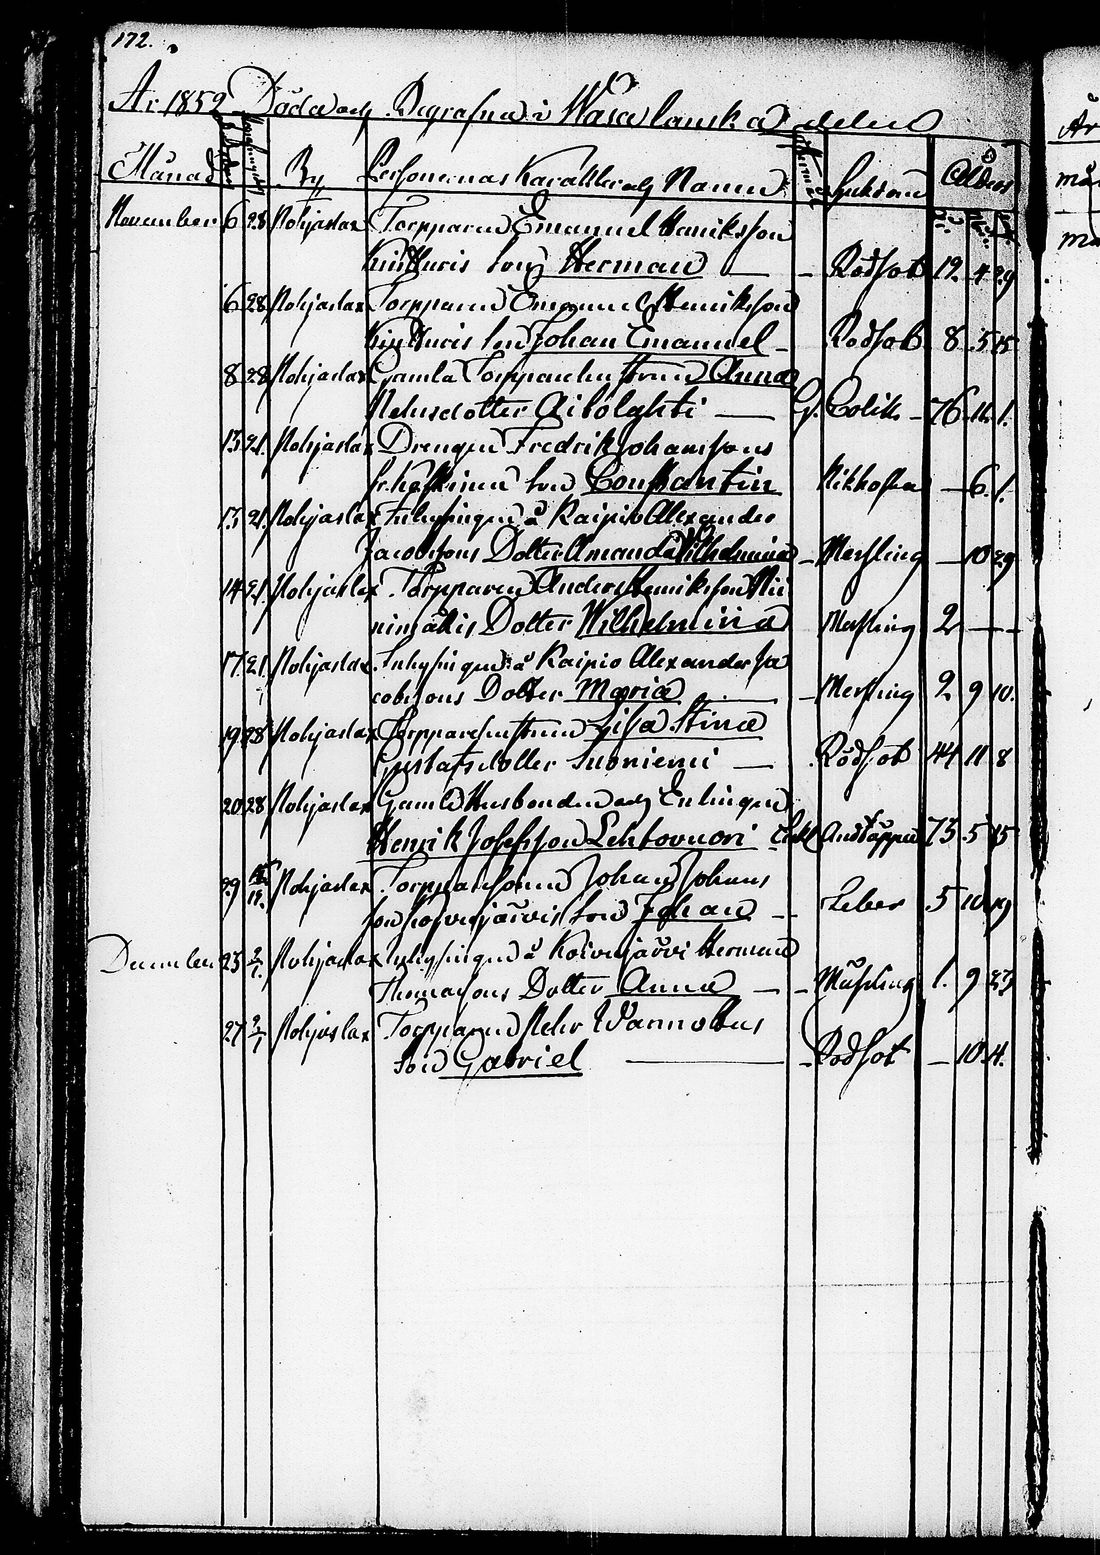 172.
År 1852 Döda och Begrafne i Wasa länska delen
Månad By Personernas Karakter och Namn Sjukdom Ålder
November 6 28 Mohjaslax Torpparen Emanuel Henriksson
Kinturis Son Herman — Rödsot 12 4 29
6 28 Mohjaslax Torpparen Emanuel Henriksson
Kinturis Son Johan Emanuel Rödsot 8 5 15
8 28 Mohjaslax Gamla Torpparehustrun Anna
Mickelsdotter — G. Colik 76 11 1.
13 21. Mohjaslax Drengen Fredrik Johanssons
Son Constantin Kikhosta — 6. 1.
13 21. Mohjaslax Inhysingen å Kaipio Alexander
Jacobssons Dotter Amanda Wilhelmina — Messling — 10 29
14 21. Mohjaslax Torpparen Anders Henriksson Nii
nimäkis Dotter Wilhelmina Messling 2 — —
17. 21. Mohjaslax Inhysingen å Kaipio Alexander Ja
cobssons Dotter Maria — Messling 2 9 10.
19 28 Mohjaslax Torpparehustrun Lisa Stina
Gustafsdotter Suoniemi — Rödsot 44 11 8
20 28 Mohjaslax Gamle Husbonden och Enklingen
Henrik Josefsson Lehtovuori Enkl Andtäppa 73 5 15
29 Mohjaslax Torpparesonen Johan Johans
son Koivujärvis Son Johan — Lefver 5 10 19
December 25 2/1. Mohjaslax Inhysingen å Koivujärvi Herman
Thomassons Dotter Anna — Mässling 1. 9 23
27 2/1 Mohjaslax Torpparen Mehr
Son Gabriel — Rödsot — 10 14.
År